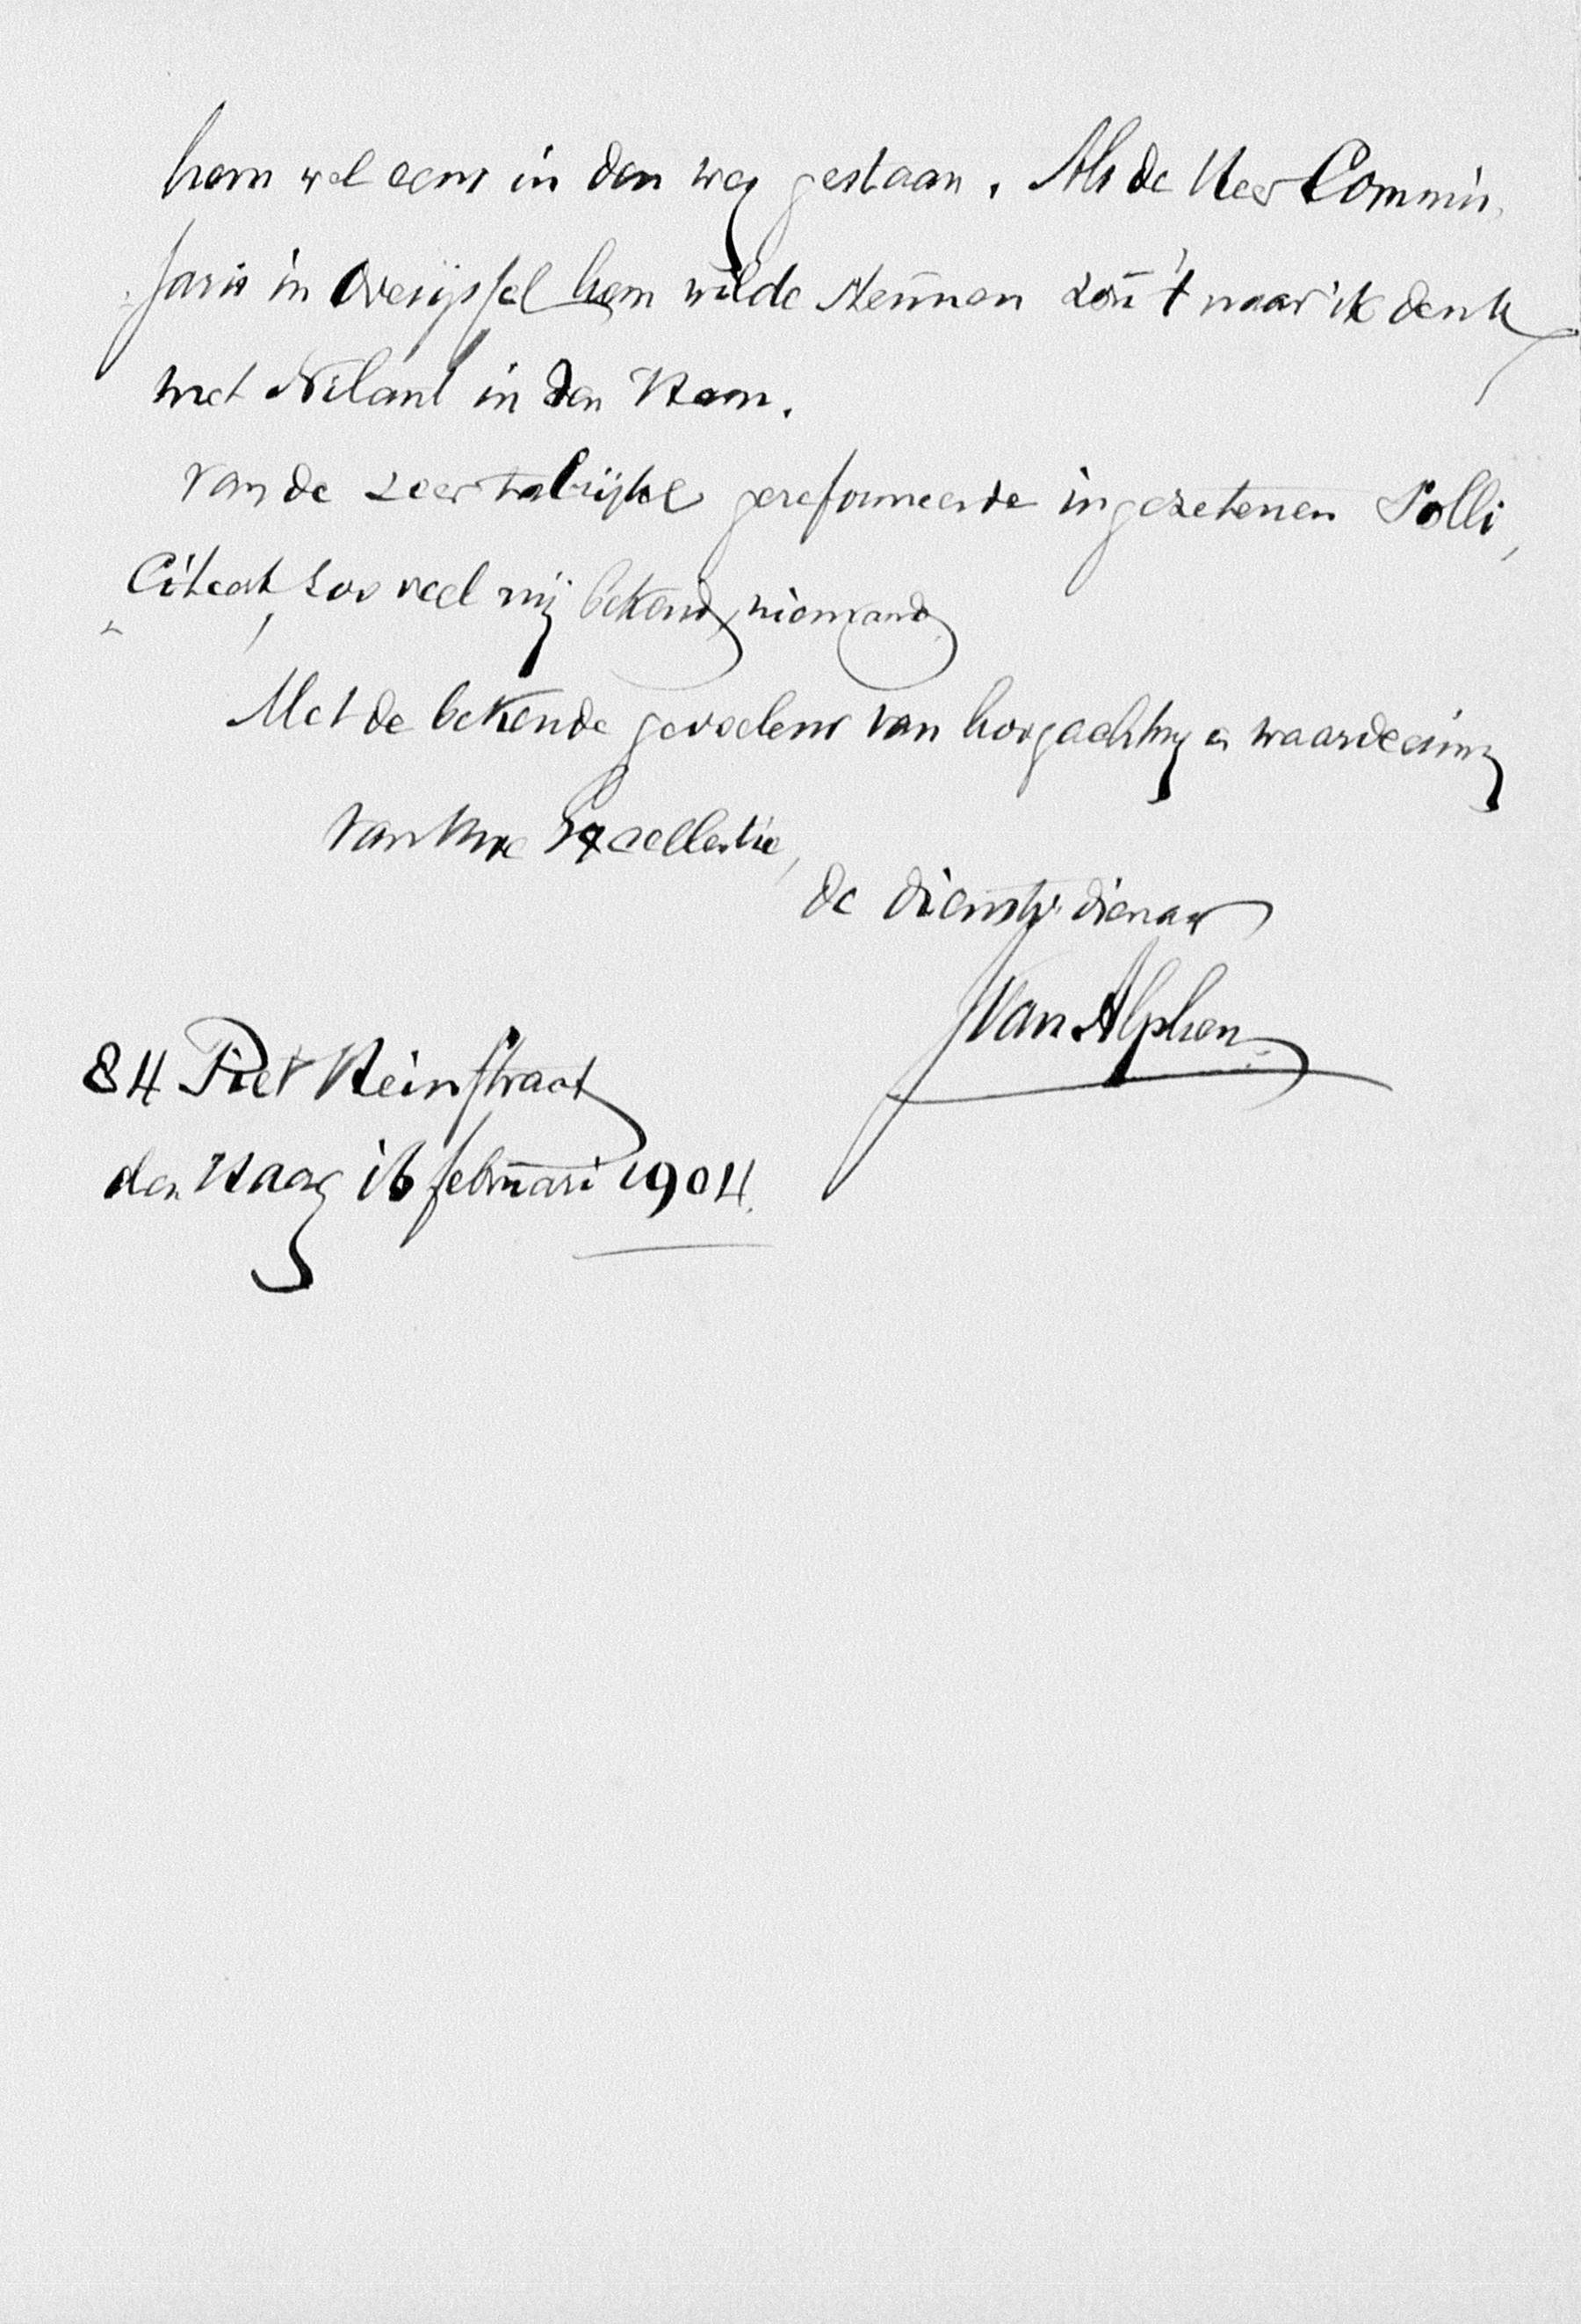 hem wel eens in den weg gestaan. Als de Heer Commis-
saris in Overijssel hem wilde steunen zou 't naar ik denk
met Nilant in den Ham.
Van de zeer talrijke gereformeerde ingezetenen solli-
citeert, zoo veel mij bekend, niemand.
Met de bekende gevoelens van hoogachting en waardeering
van Uwe Excellentie,
de dienstw. dienaar
Van Alphen
84 Piet Heinstraat
den Haag 16 februari 1904.